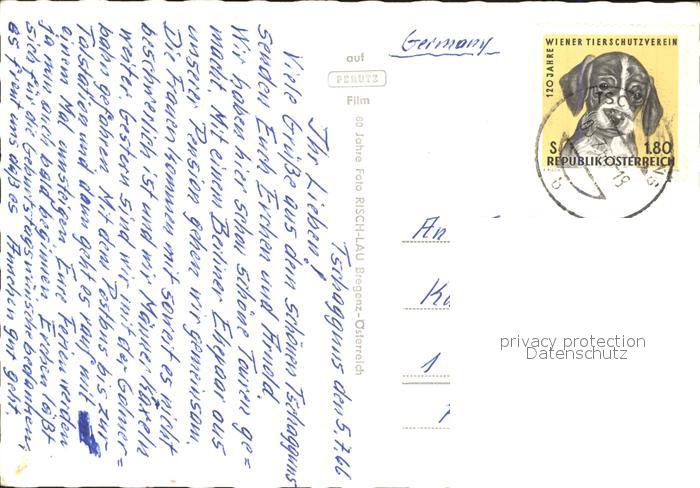 Tschagguns den 5.7.66
Ihr Lieben!
Viele Grüße aus dem schönen Tschagguns
senden Euch Erchen und Arnold.
Wir haben hier schon schöne Touren ge=
macht. Mit einem Berliner Ehepaar aus
unserer Pension gehen wir gemeinsam.
Die Frauen kommen mit soweit es nicht
beschwerlich ist und wir Männer kraxeln
weiter. Gestern sind wir mit der Golmer=
bahn gefahren. Mit dem Postbus bis zur
Talstation und dann geht es rauf mit
einem Mal umsteigen. Eure Ferien werden
ja nun auch bald beginnen. Erchen läßt
sich für die Geburtstagswünsche bedanken,
es freut uns daß es Anneken gut geht
auf
PERUTZ
Film
60 Jahre Foto RISCH-LAU Bregenz-Österreich
Germany
120 JAHRE WIENER TIERSCHUTZVEREIN
S 1.80
REPUBLIK ÖSTERREICH
An
1
privacy protection
Datenschutz